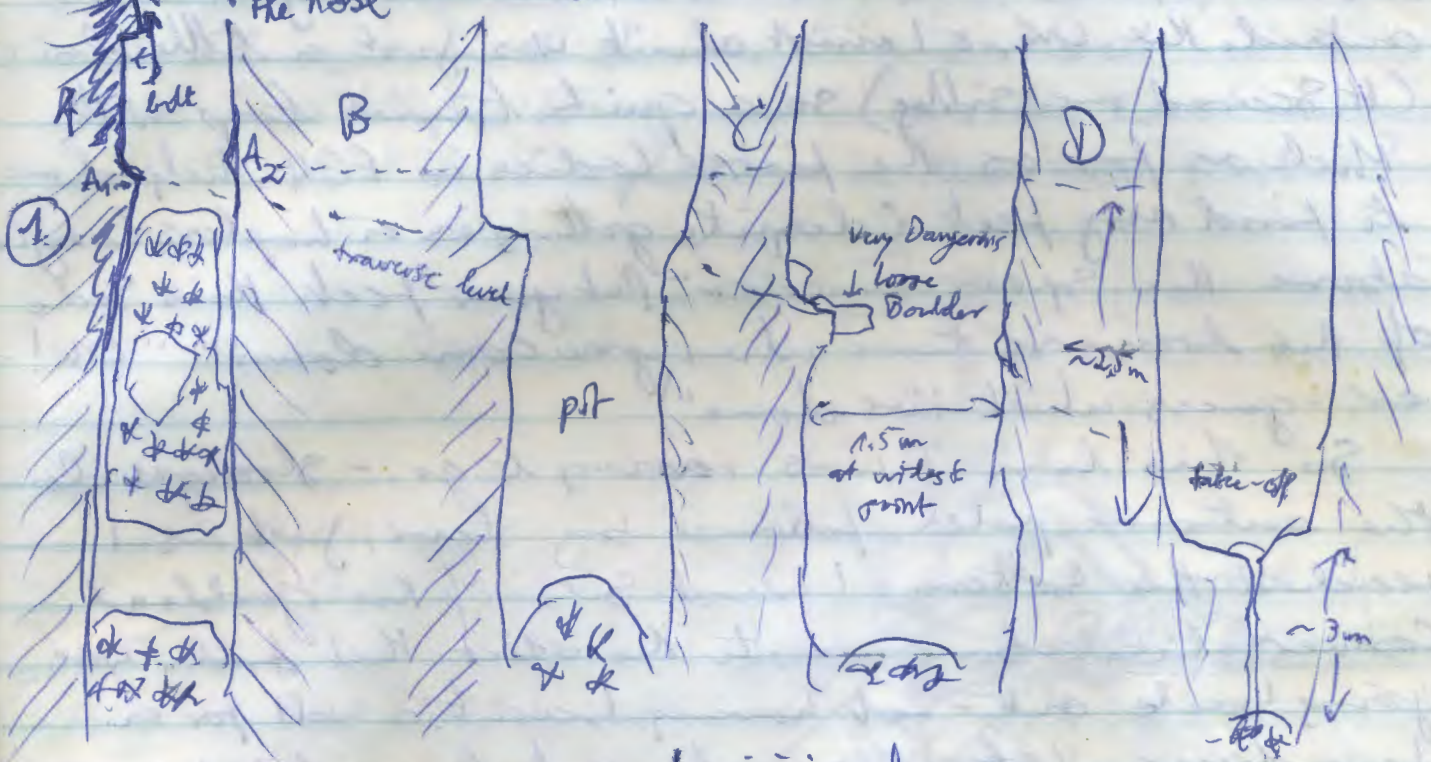 the Nose
bolt
A
B
D
A1
A2
1
traverse level
very Dangerous
Loose
Boulder
pit
~2,5m
1.5m
at widest
point
take-off
~3m